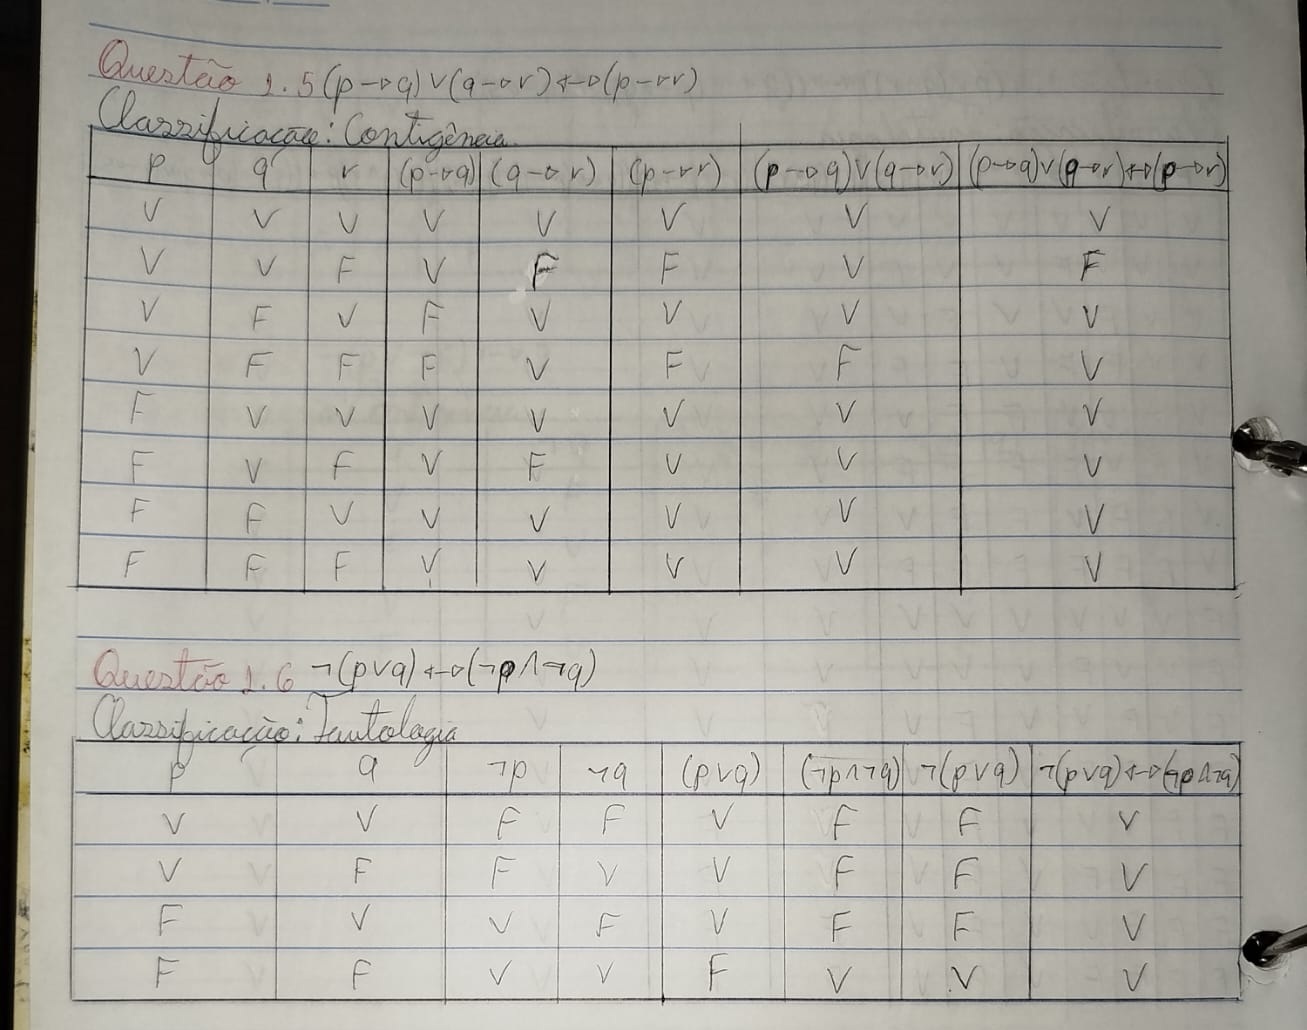 Questão 1.5 (p→q)∨(q→r)↔(p→r)
Classificação: Contigência
p q r (p→q) (q→r) (p→r) (p→q)∨(q→r) (p→q)∨(q→r)↔(p→r)
V V V V V V V V
V V F V F F V F
V F V F V V V V
V F F F V F F V
F V V V V V V V
F V F V F V V V
F F V V V V V V
F F F V V V V V
Questão 1.6 ¬(p∨q)↔(¬p∧¬q)
Classificação: Tautologia
p q ¬p ¬q (p∨q) (¬p∧¬q) ¬(p∨q) ¬(p∨q)↔(¬p∧¬q)
V V F F V F F V
V F F V V F F V
F V V F V F F V
F F V V F V V V